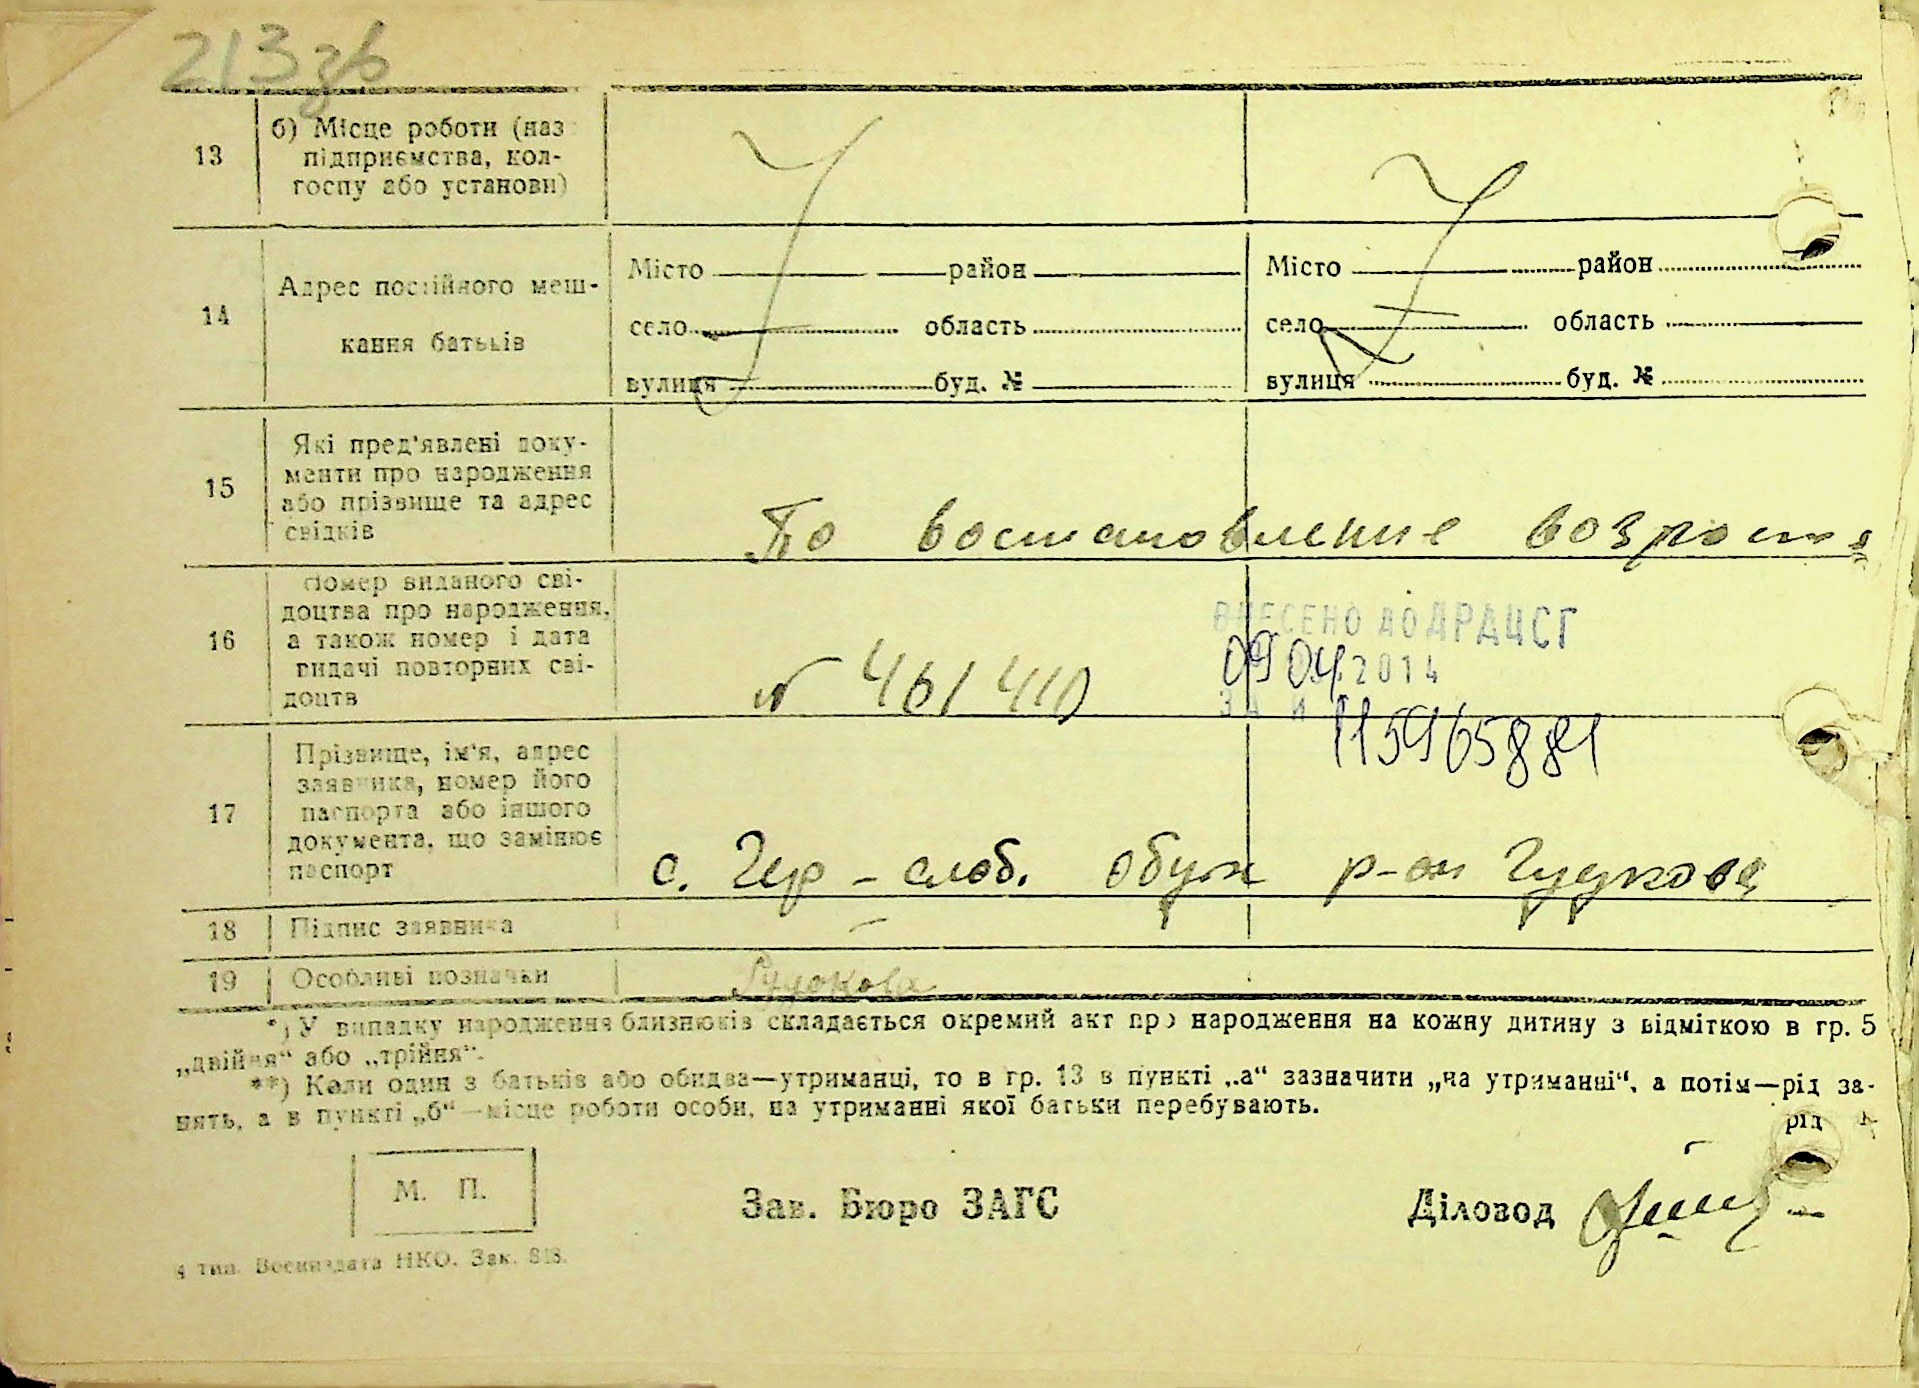 213зв
13
б) Місце роботи (наз
підприємства, кол-
госпу або установи)
14
Адрес постійного меш-
кання батьків
Місто район
село область
вулиця буд. №
Місто район
село область
вулиця буд. №
15
Які пред'явлені доку-
менти про народження
або прізвище та адрес
свідків
По востановление возроста
16
Номер виданого сві-
доцтва про народження,
а також номер і дата
видачі повторних сві-
доцтв
№ 461410
ВНЕСЕНО ДО ДРАЦСГ
09 04 2014
ЗА №
17
Прізвище, ім'я, адрес
заявника, номер його
паспорта або іншого
документа, що замінює
паспорт
с. Гер - слоб. обух р-он Гудкова
18
Підпис заявника
19
Особливі позначки
Гудкова
*) У випадку народження близнюків складається окремий акт про народження на кожну дитину з відміткою в гр. 5
„двійня“ або „трійня“.
**) Коли один з батьків або обидва—утриманці, то в гр. 13 в пункті „а“ зазначити „на утриманні“, а потім—рід за-
нять, а в пункті „б“—місце роботи особи, на утриманні якої батьки перебувають.
рід
М. П.
Зав. Бюро ЗАГС
Діловод
4 тип. Воениздата НКО. Зак. 818.